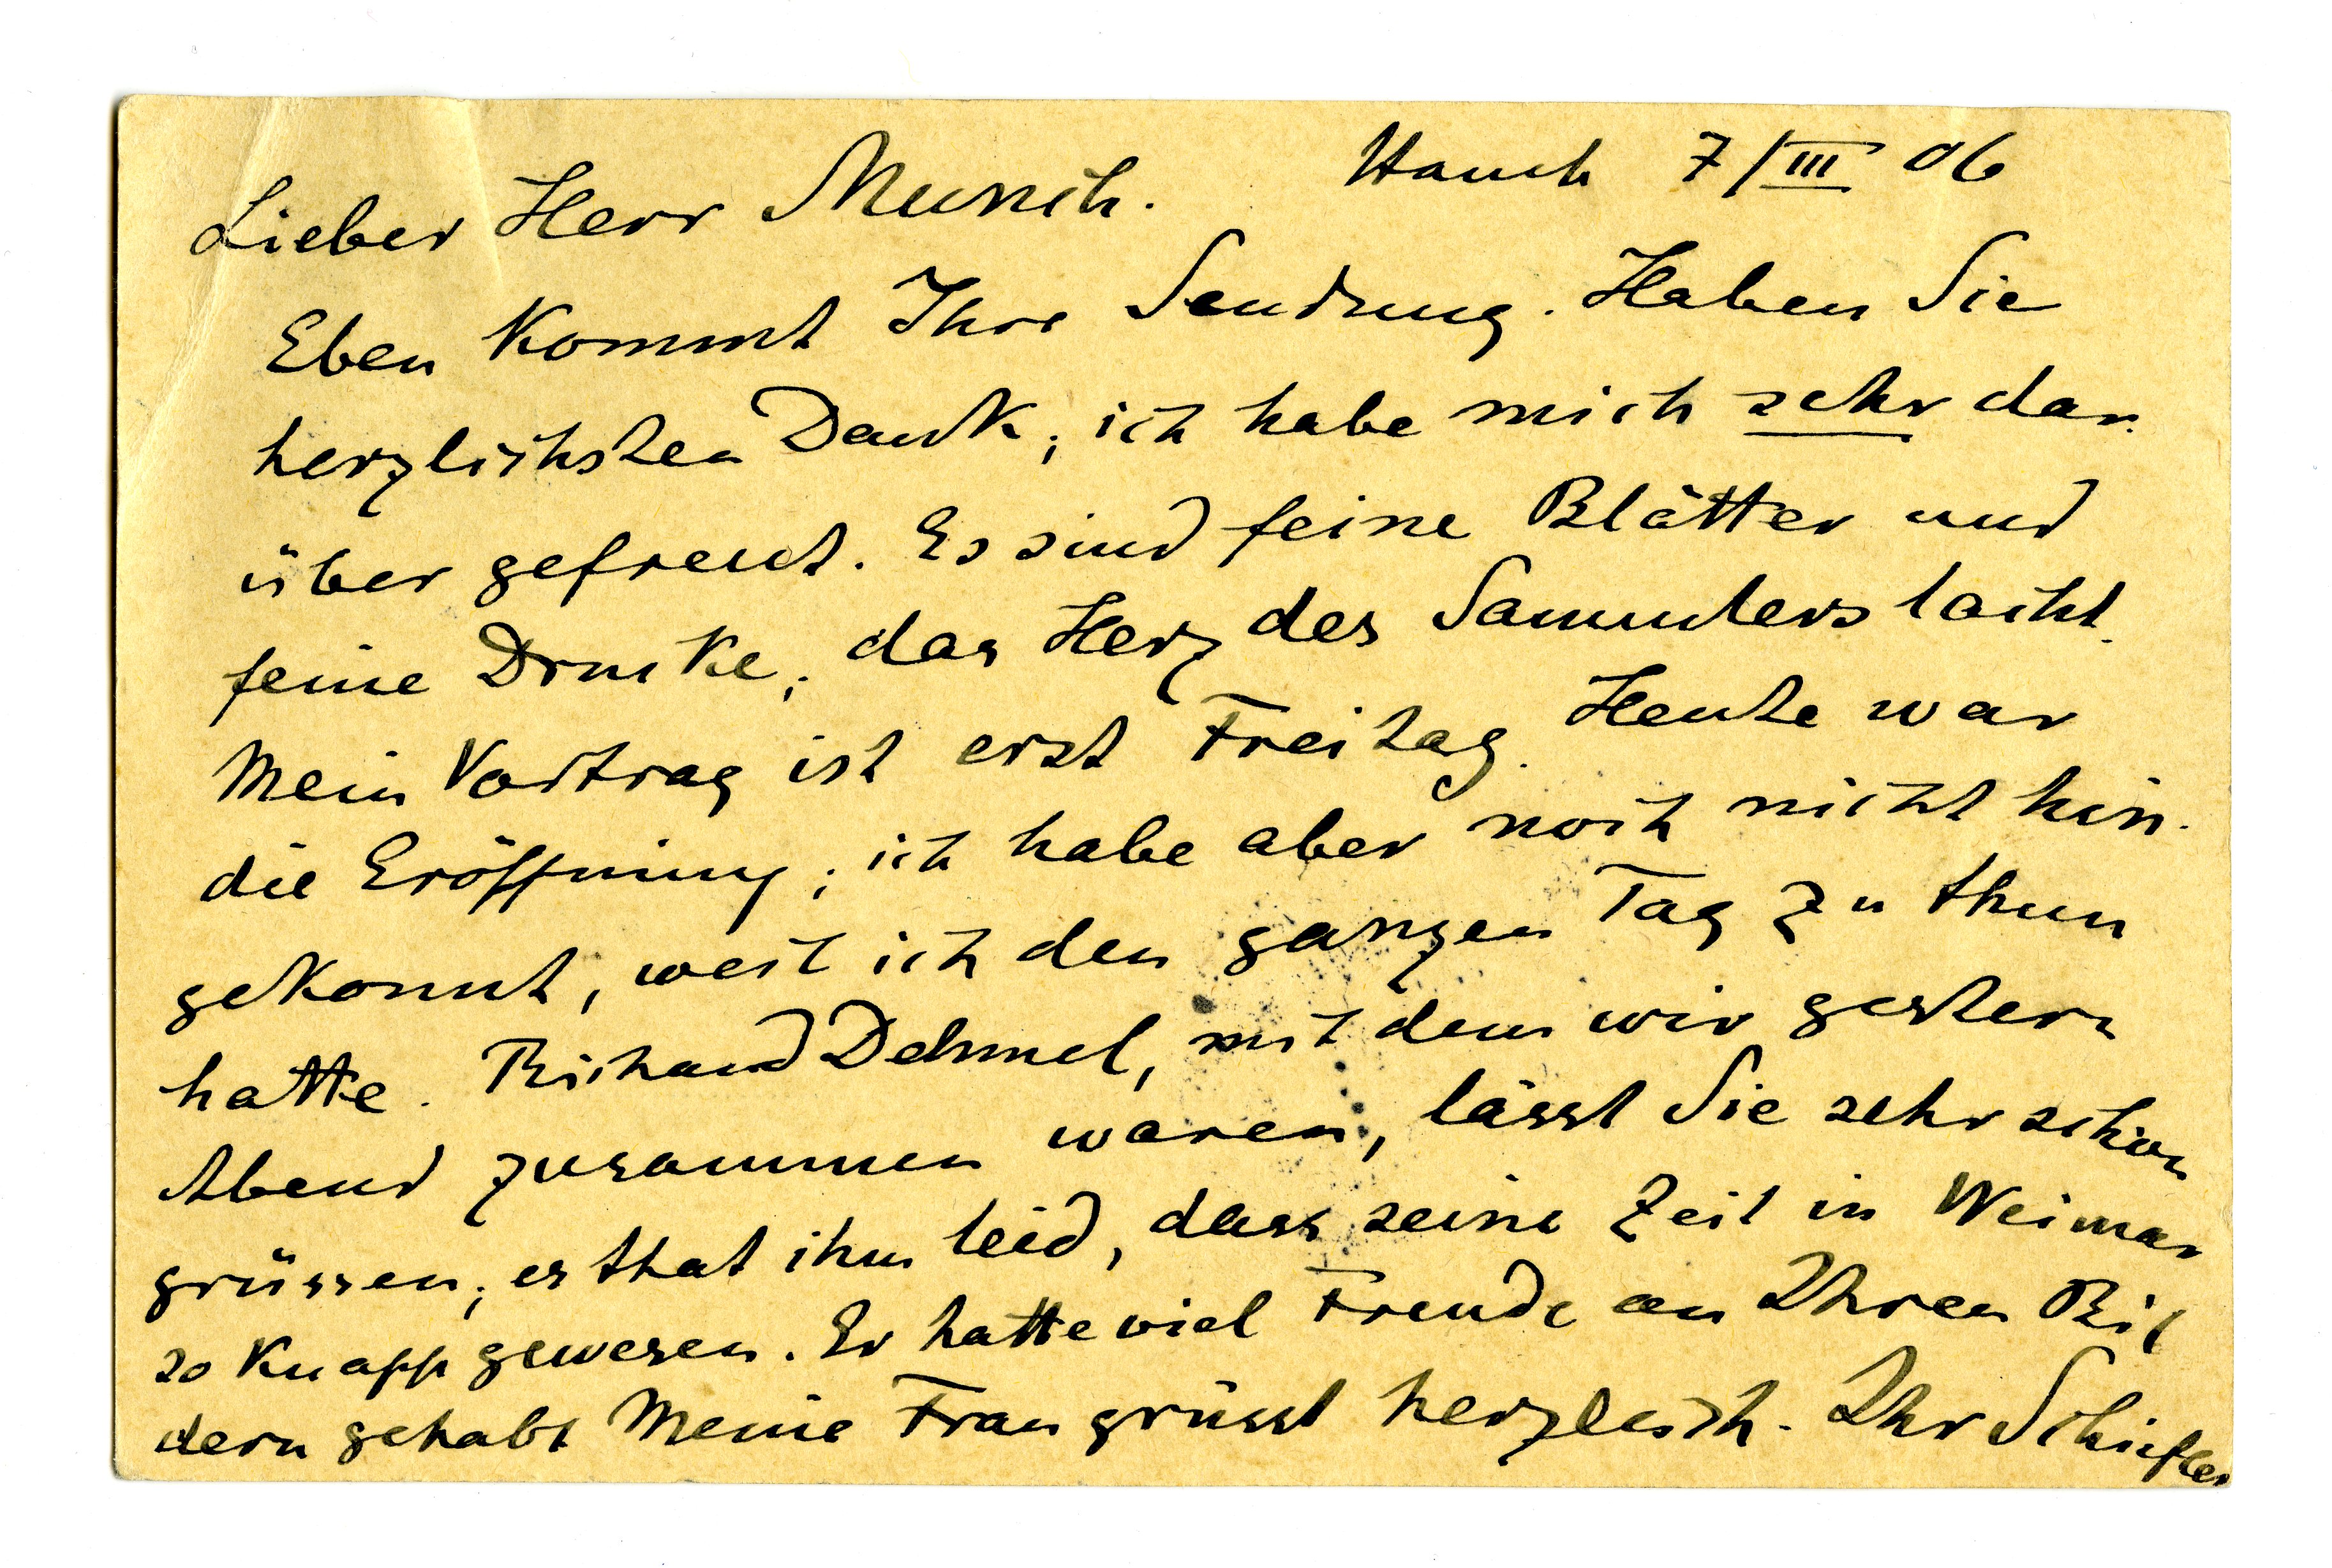 Hamb 7/III 06
Lieber Herr Munch.
Eben kommt Ihre Sendung. Haben Sie
herzlichsten Dank; ich habe mich sehr dar-
über gefreut. Es sind feine Blätter und
feine Drucke; das Herz des Sammlers lacht.
Mein Vortrag ist erst Freitag. Heute war
die Eröffnung; ich habe aber noch nicht hin-
gekonnt, weil ich den ganzen Tag zu thun
hatte. Richard Dehmel, mit dem wir gestern
Abend zusammen waren, lässt Sie sehr schön
grüssen; es that ihm leid, dass seine Zeit in Weimar
so knapp gewesen. Er hatte viel Freude an Ihren Bil
dern gehabt Meine Frau grüsst herzlich. Ihr Schiefler